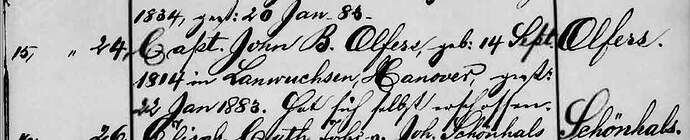 1834, gest: 20 Jan 83.
15, " 24, Capt. John B. Olfers, geb: 14 Sept. Olfers.
1814 in Lanwuchsen, Hanover, gest:
22 Jan 1883. Hat sich selbst erschossen.
26 Joh. Schönhals Schönhals.